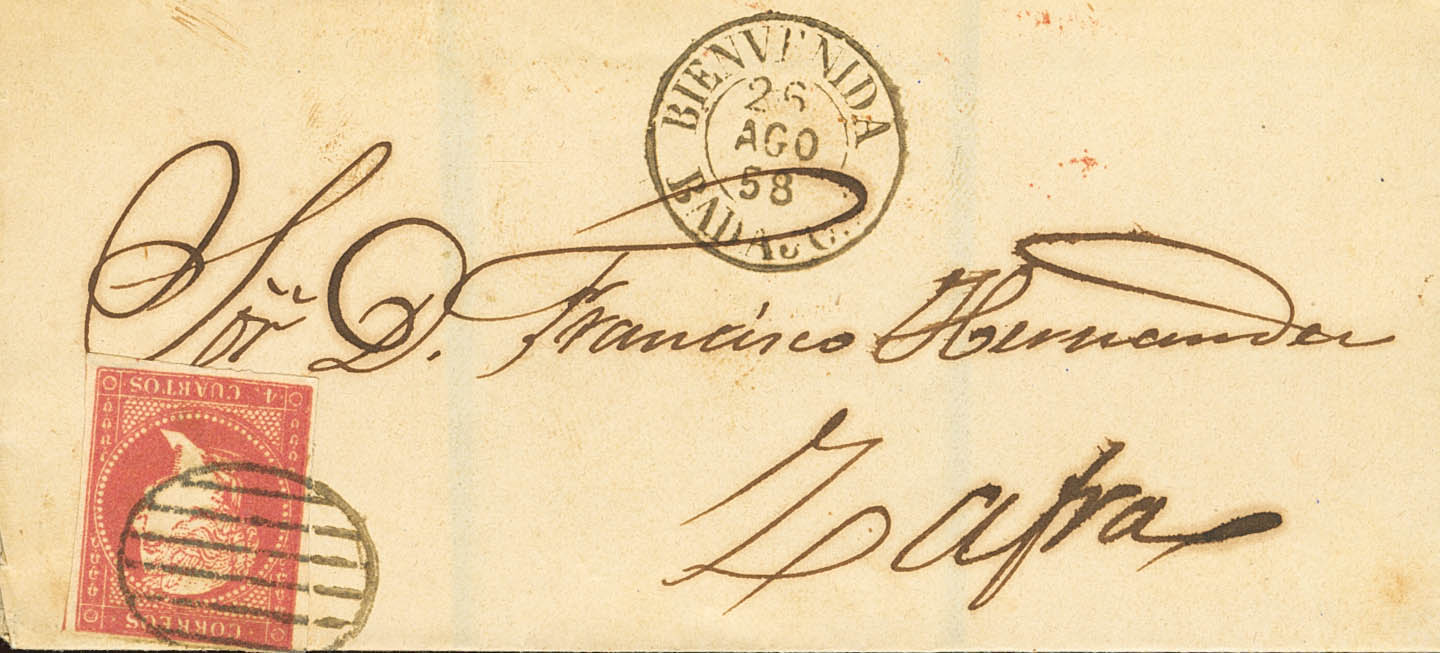 BIENVENIDA
26
AGO
58
BADAJ.C.
Sor. D. Francisco Hernandez
Zafra
4 CUARTOS
CORREOS